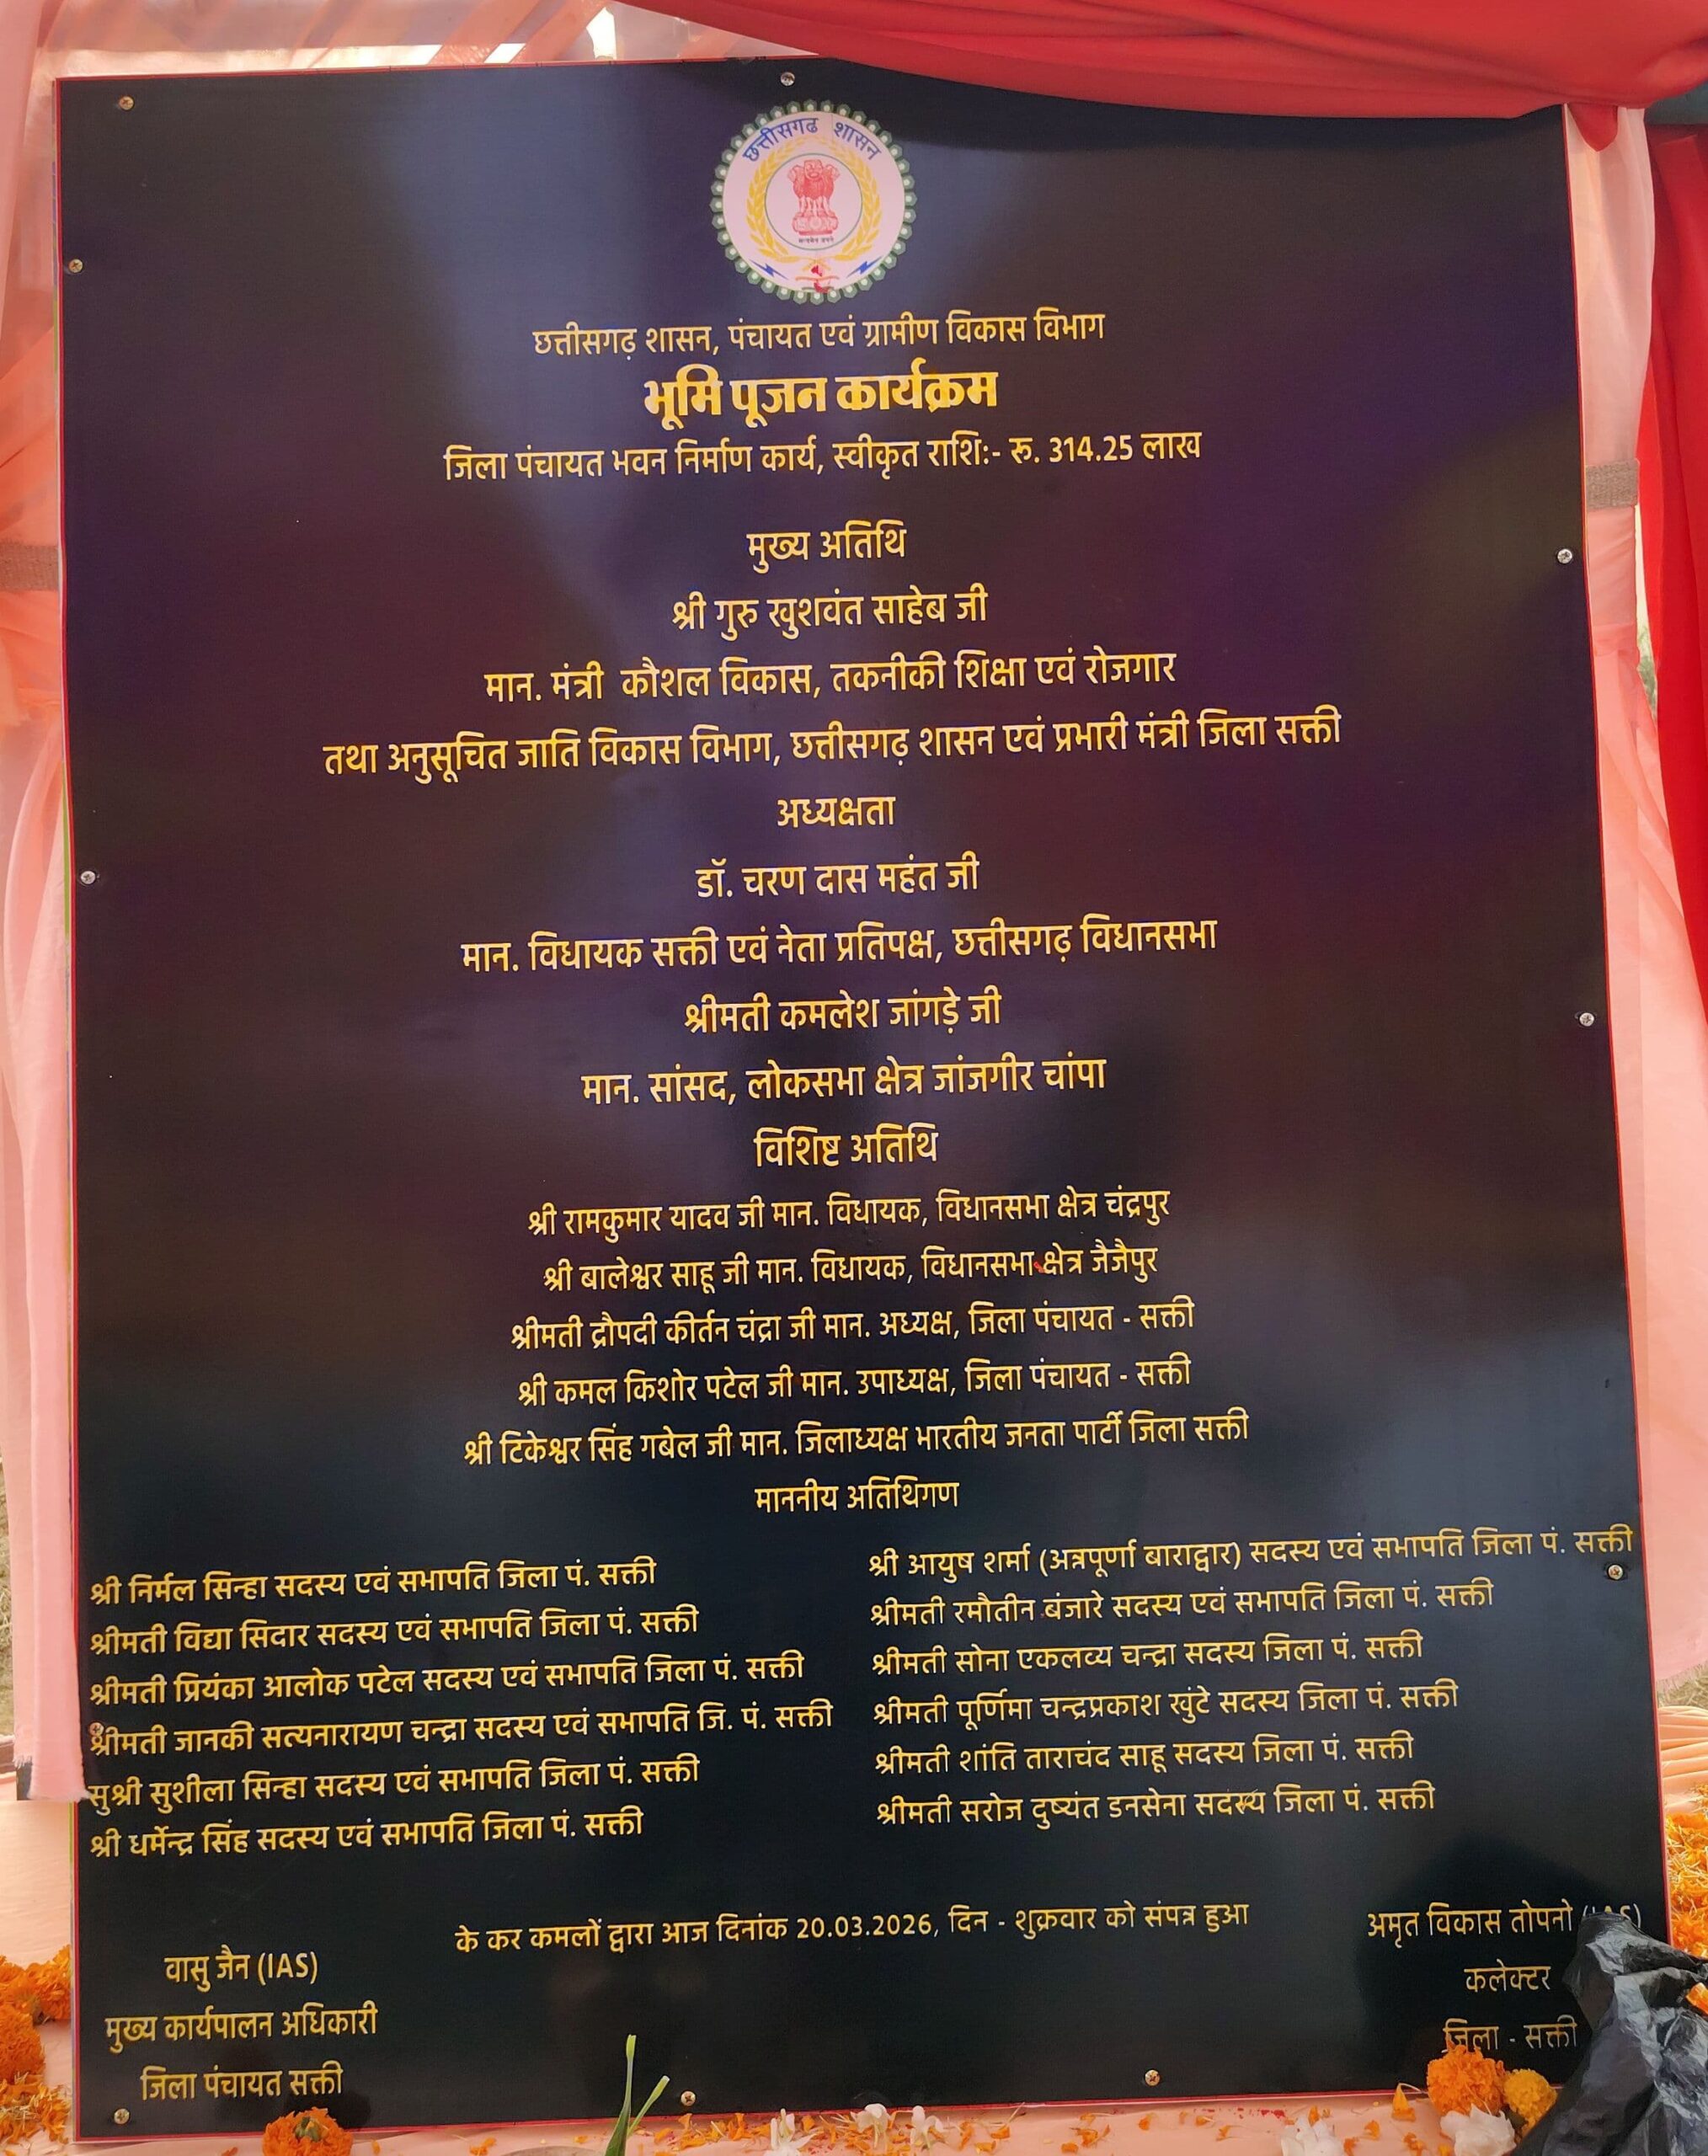 छत्तीसगढ़ शासन
सत्यमेव जयते
छत्तीसगढ़ शासन, पंचायत एवं ग्रामीण विकास विभाग
भूमि पूजन कार्यक्रम
जिला पंचायत भवन निर्माण कार्य, स्वीकृत राशि:- रू. 314.25 लाख
मुख्य अतिथि
श्री गुरु खुशवंत साहेब जी
मान. मंत्री कौशल विकास, तकनीकी शिक्षा एवं रोजगार
तथा अनुसूचित जाति विकास विभाग, छत्तीसगढ़ शासन एवं प्रभारी मंत्री जिला सक्ती
अध्यक्षता
डॉ. चरण दास महंत जी
मान. विधायक सक्ती एवं नेता प्रतिपक्ष, छत्तीसगढ़ विधानसभा
श्रीमती कमलेश जांगड़े जी
मान. सांसद, लोकसभा क्षेत्र जांजगीर चांपा
विशिष्ट अतिथि
श्री रामकुमार यादव जी मान. विधायक, विधानसभा क्षेत्र चंद्रपुर
श्री बालेश्वर साहू जी मान. विधायक, विधानसभा क्षेत्र जैजैपुर
श्रीमती द्रौपदी कीर्तन चंद्रा जी मान. अध्यक्ष, जिला पंचायत - सक्ती
श्री कमल किशोर पटेल जी मान. उपाध्यक्ष, जिला पंचायत - सक्ती
श्री टिकेश्वर सिंह गबेल जी मान. जिलाध्यक्ष भारतीय जनता पार्टी जिला सक्ती
माननीय अतिथिगण
श्री निर्मल सिन्हा सदस्य एवं सभापति जिला पं. सक्ती
श्रीमती विद्या सिदार सदस्य एवं सभापति जिला पं. सक्ती
श्रीमती प्रियंका आलोक पटेल सदस्य एवं सभापति जिला पं. सक्ती
श्रीमती जानकी सत्यनारायण चन्द्रा सदस्य एवं सभापति जि. पं. सक्ती
सुश्री सुशीला सिन्हा सदस्य एवं सभापति जिला पं. सक्ती
श्री धर्मेन्द्र सिंह सदस्य एवं सभापति जिला पं. सक्ती
श्री आयुष शर्मा (अन्नपूर्णा बाराद्वार) सदस्य एवं सभापति जिला पं. सक्ती
श्रीमती रमौतीन बंजारे सदस्य एवं सभापति जिला पं. सक्ती
श्रीमती सोना एकलव्य चन्द्रा सदस्य जिला पं. सक्ती
श्रीमती पूर्णिमा चन्द्रप्रकाश खुंटे सदस्य जिला पं. सक्ती
श्रीमती शांति ताराचंद साहू सदस्य जिला पं. सक्ती
श्रीमती सरोज दुष्यंत डनसेना सदस्य जिला पं. सक्ती
के कर कमलों द्वारा आज दिनांक 20.03.2026, दिन - शुक्रवार को संपन्न हुआ
वासु जैन (IAS)
मुख्य कार्यपालन अधिकारी
जिला पंचायत सक्ती
अमृत विकास तोपनो
कलेक्टर
जिला - सक्ती